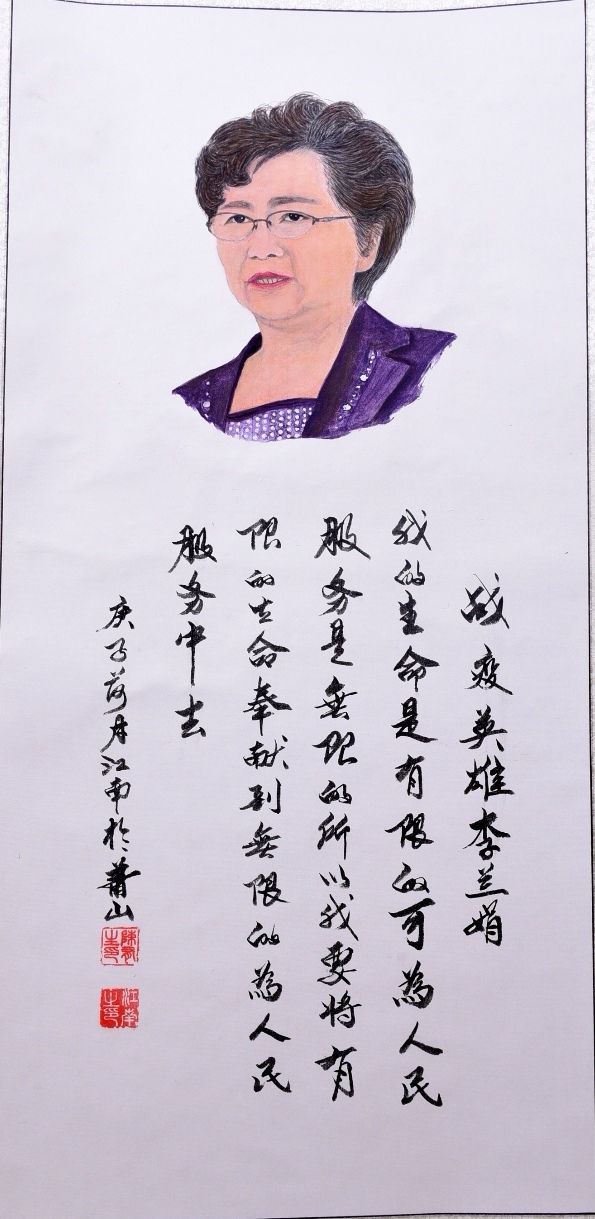 战疫英雄李兰娟
我的生命是有限的可為人民
服务是無限的所以我要将有
限的生命奉献到無限的為人民
服务中去
庚子荷月江南於萧山
江南